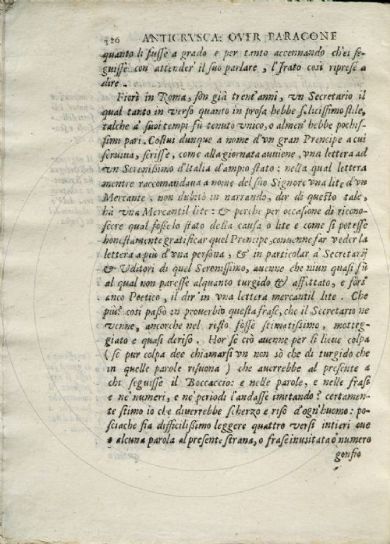 126 ANTICRVSCA: OVER PARAGONE
quanto li fusse a grado e per tanto accennando ch'ei se
guisse con attender il suo parlare, l'Irato così riprese a
dire.
Fiorì in Roma, son già trent'anni, vn Secretario il
qual tanto in verso quanto in prosa hebbe felicissimo stile,
talche a' suoi tempi fù tenuto vnico, o almen' hebbe pochis
simi pari. Costui dunque a nome d'vn gran Prencipe a cui
seruiua, scrisse, come alla giornata auuiene, vna lettera ad
vn Serenissimo d'Italia d'ampio stato: nella qual lettera
mentre raccomandaua a nome del suo Signore vna lite d'vn
Mercante: non dubitò in narrando, dir di questo tale,
hà vna Mercantil lite: & perche per occasione di ricono-
scere qual fosse lo stato della causa o lite e come si potesse
honestamente gratificar quel Prencipe, conuenne far veder la
lettera a piu d'vna persona, & in particolar a' Secretarij
& Vditori di quel Serenissimo, auenne che niun quasi fù
al qual non paresse alquanto turgido & affettato, e fors'
anco Poetico, il dir' in vna lettera mercantil lite. Che
più? così passò in prouerbio questa frase, che il Secretario ne
venne, ancorche nel resto fosse stimatissimo, motteg-
giato e quasi deriso. Hor se ciò auenne per sì lieue colpa
(se pur colpa dee chiamarsi vn non sò che di turgido che
in quelle parole risuona) che auerrebbe al presente a
chi seguisse il Boccaccio: e nelle parole, e nelle frasi
e ne' numeri, e ne' periodi l'andasse imitando? certamen
te stimo io che diuerrebbe scherzo e riso d'ogn'huomo: po-
sciache sia difficilissimo leggere quattro versi intieri oue
o alcuna parola al presente strana, o frase inusitata o numero
gonfio